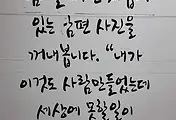 있는 남편 사진을
꺼내봅니다. “내가
이것도 사람 만들었는데
세상에 못할 일이